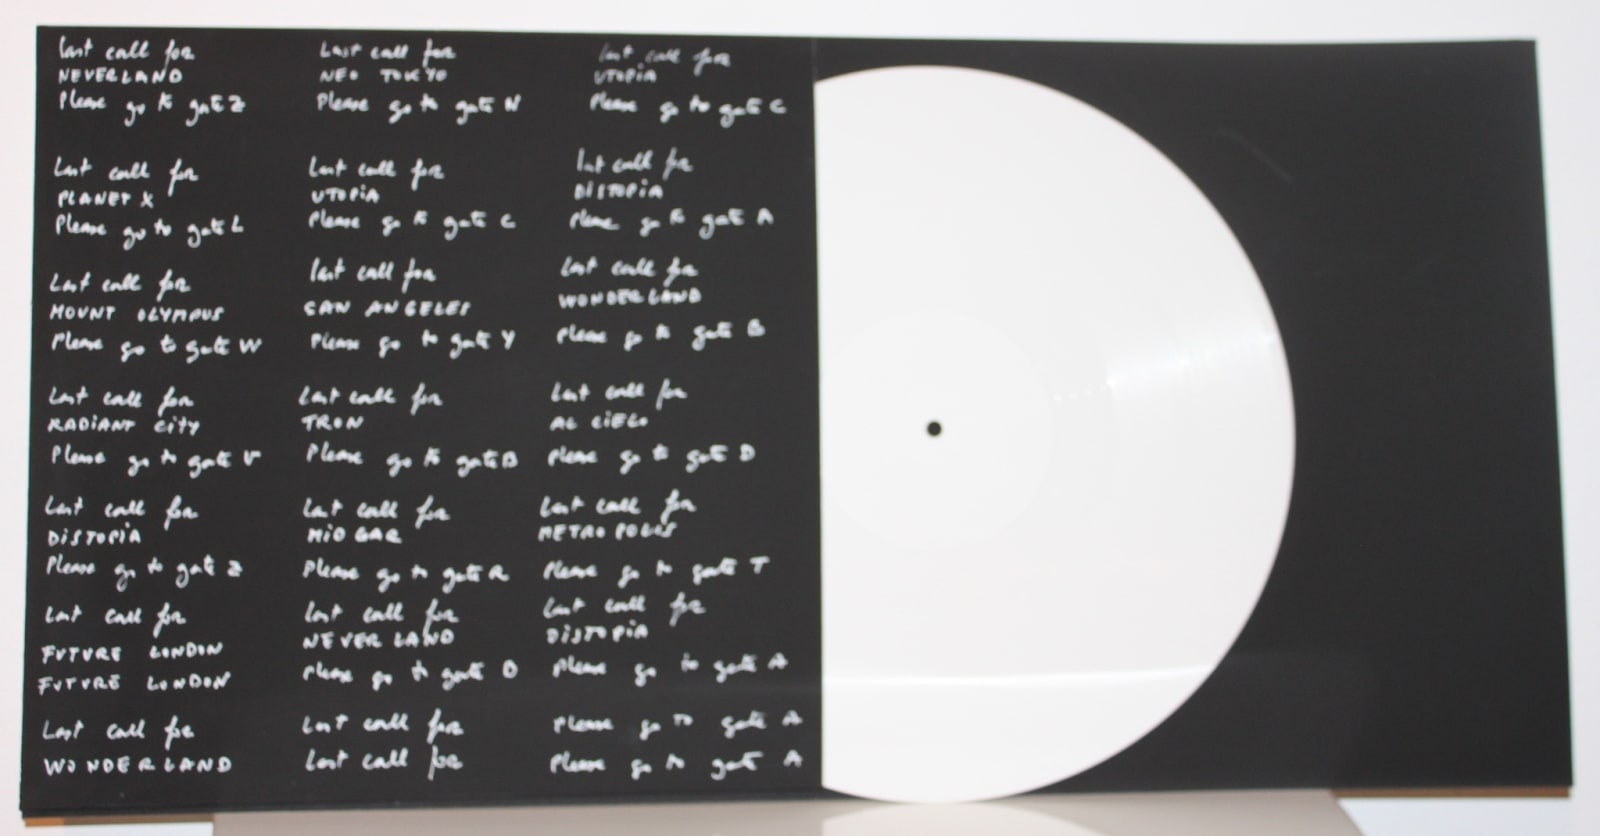 Last call for
NEVERLAND
Please go to gate Z
Last call for
PLANET X
Please go to gate L
Last call for
MOUNT OLYMPUS
Please go to gate W
Last call for
RADIANT CITY
Please go to gate V
Last call for
DISTOPIA
Please go to gate Z
Last call for
FUTURE LONDON
FUTURE LONDON
Last call for
WONDERLAND
Last call for
NEO TOKYO
Please go to gate N
Last call for
UTOPIA
Please go to gate C
Last call for
SAN ANGELES
Please go to gate Y
Last call for
TRON
Please go to gate B
Last call for
MIDGAR
Please go to gate R
Last call for
NEVERLAND
Please go to gate D
Last call for
Last call for
Last call for
UTOPIA
Please go to gate C
Last call for
DISTOPIA
Please go to gate A
Last call for
WONDERLAND
Please go to gate B
Last call for
AL CIELO
Please go to gate D
Last call for
METROPOLIS
Please go to gate T
Last call for
DISTOPIA
Please go to gate A
Please go to gate A
Please go to gate A